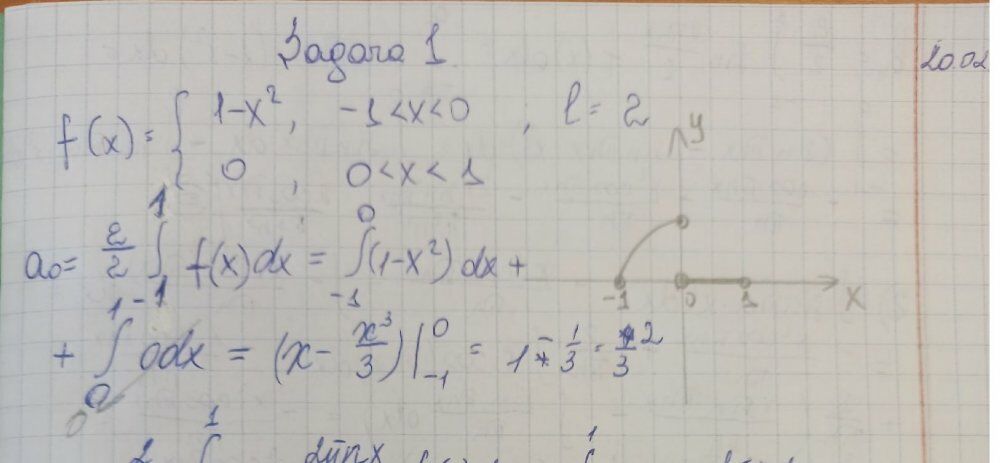 Задача 1
20.02
f(x) = { 1-x², -1<x<0
0, 0<x<1
, l = 2
y
a₀ = 2/2 ∫₋₁¹ f(x)dx = ∫₋₁⁰ (1-x²)dx +
-1 0 1 x
+ ∫₀¹ 0dx = (x - x³/3)|₋₁⁰ = 1 - 1/3 = 2/3
0
2 ∫ 1 2πnx 1